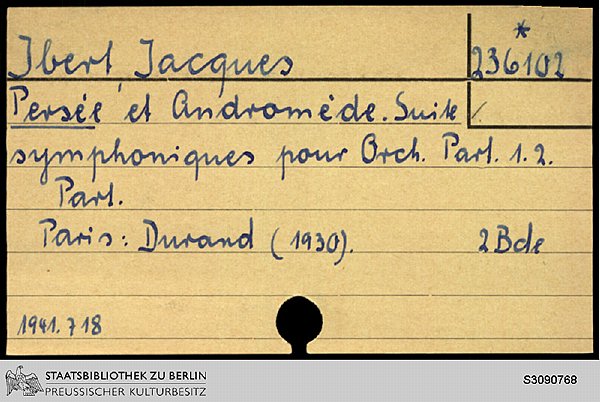 Ibert, Jacques
*
236102
Persée et Andromède. Suite
symphoniques pour Orch. Part. 1. 2.
Part.
Paris: Durand (1930).
2 Bde
1941.718
STAATSBIBLIOTHEK ZU BERLIN
PREUSSISCHER KULTURBESITZ
S3090768